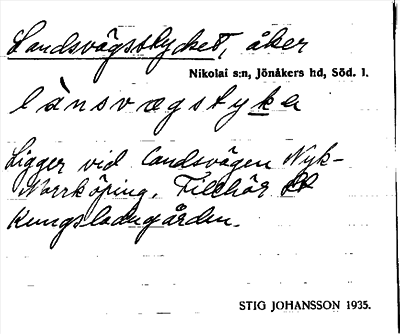 Landsvägsstycket, åker
Nikolai s:n, Jönåkers hd, Söd. l.
länsvægstyka
Ligger vid landsvägen Nyk-
Norrköping. Tillhör
Kungsladugården.
STIG JOHANSSON 1935.